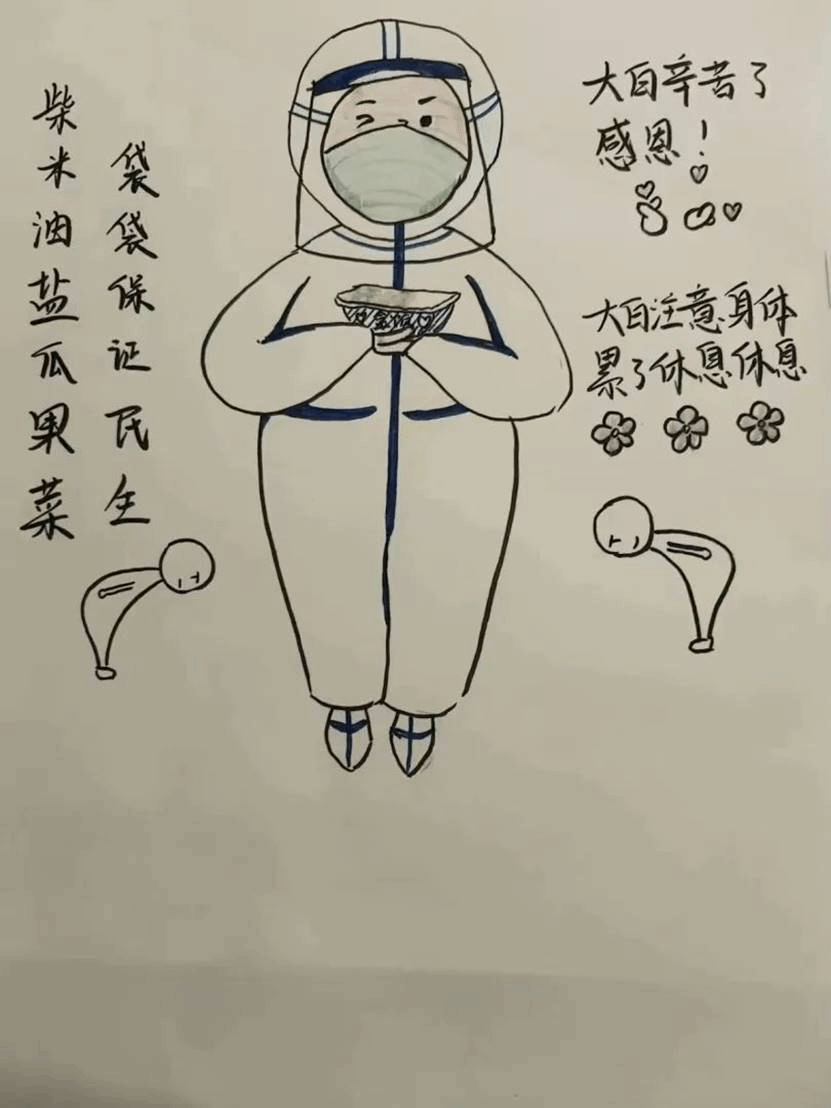 柴米油盐瓜果菜
袋袋保证民生
大白辛苦了
感恩！
大白注意身体
累了休息休息